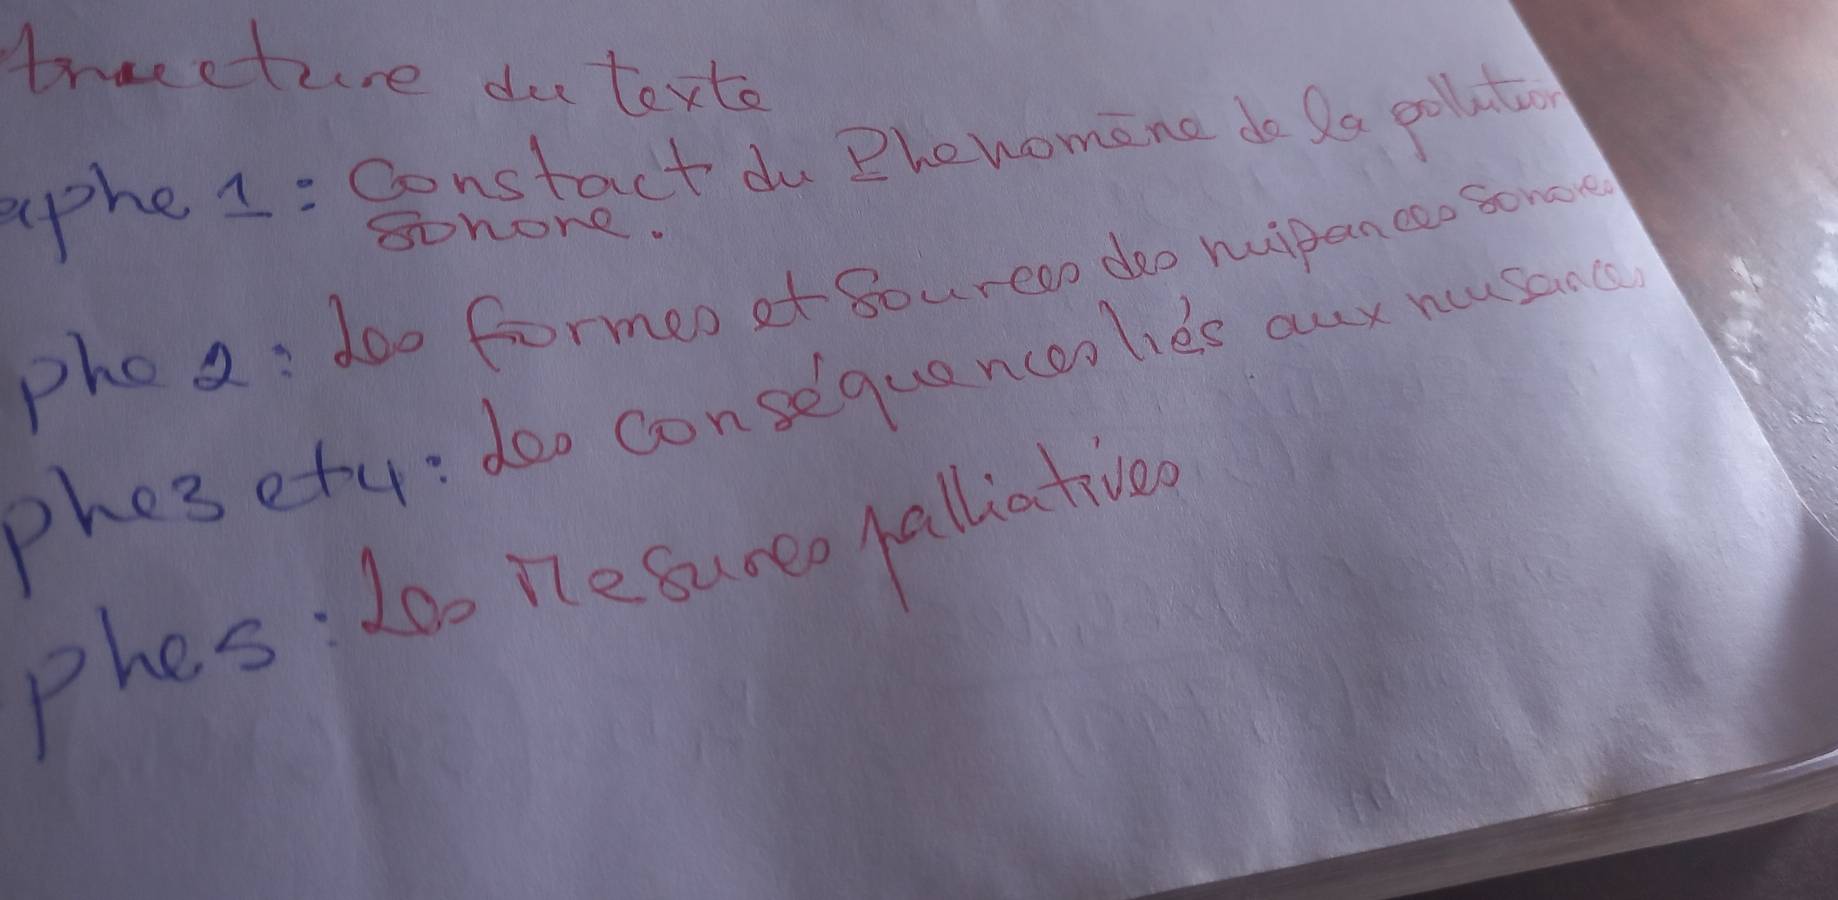 tructure du texte
aphe 1 : Constact du Phenomène de la pollution
sonore.
phe 2 : Les formes et sources des nuisances sonores
phe 3 et 4 : Les conséquences liés aux nuisances
phe 5 : Les Mesures palliatives